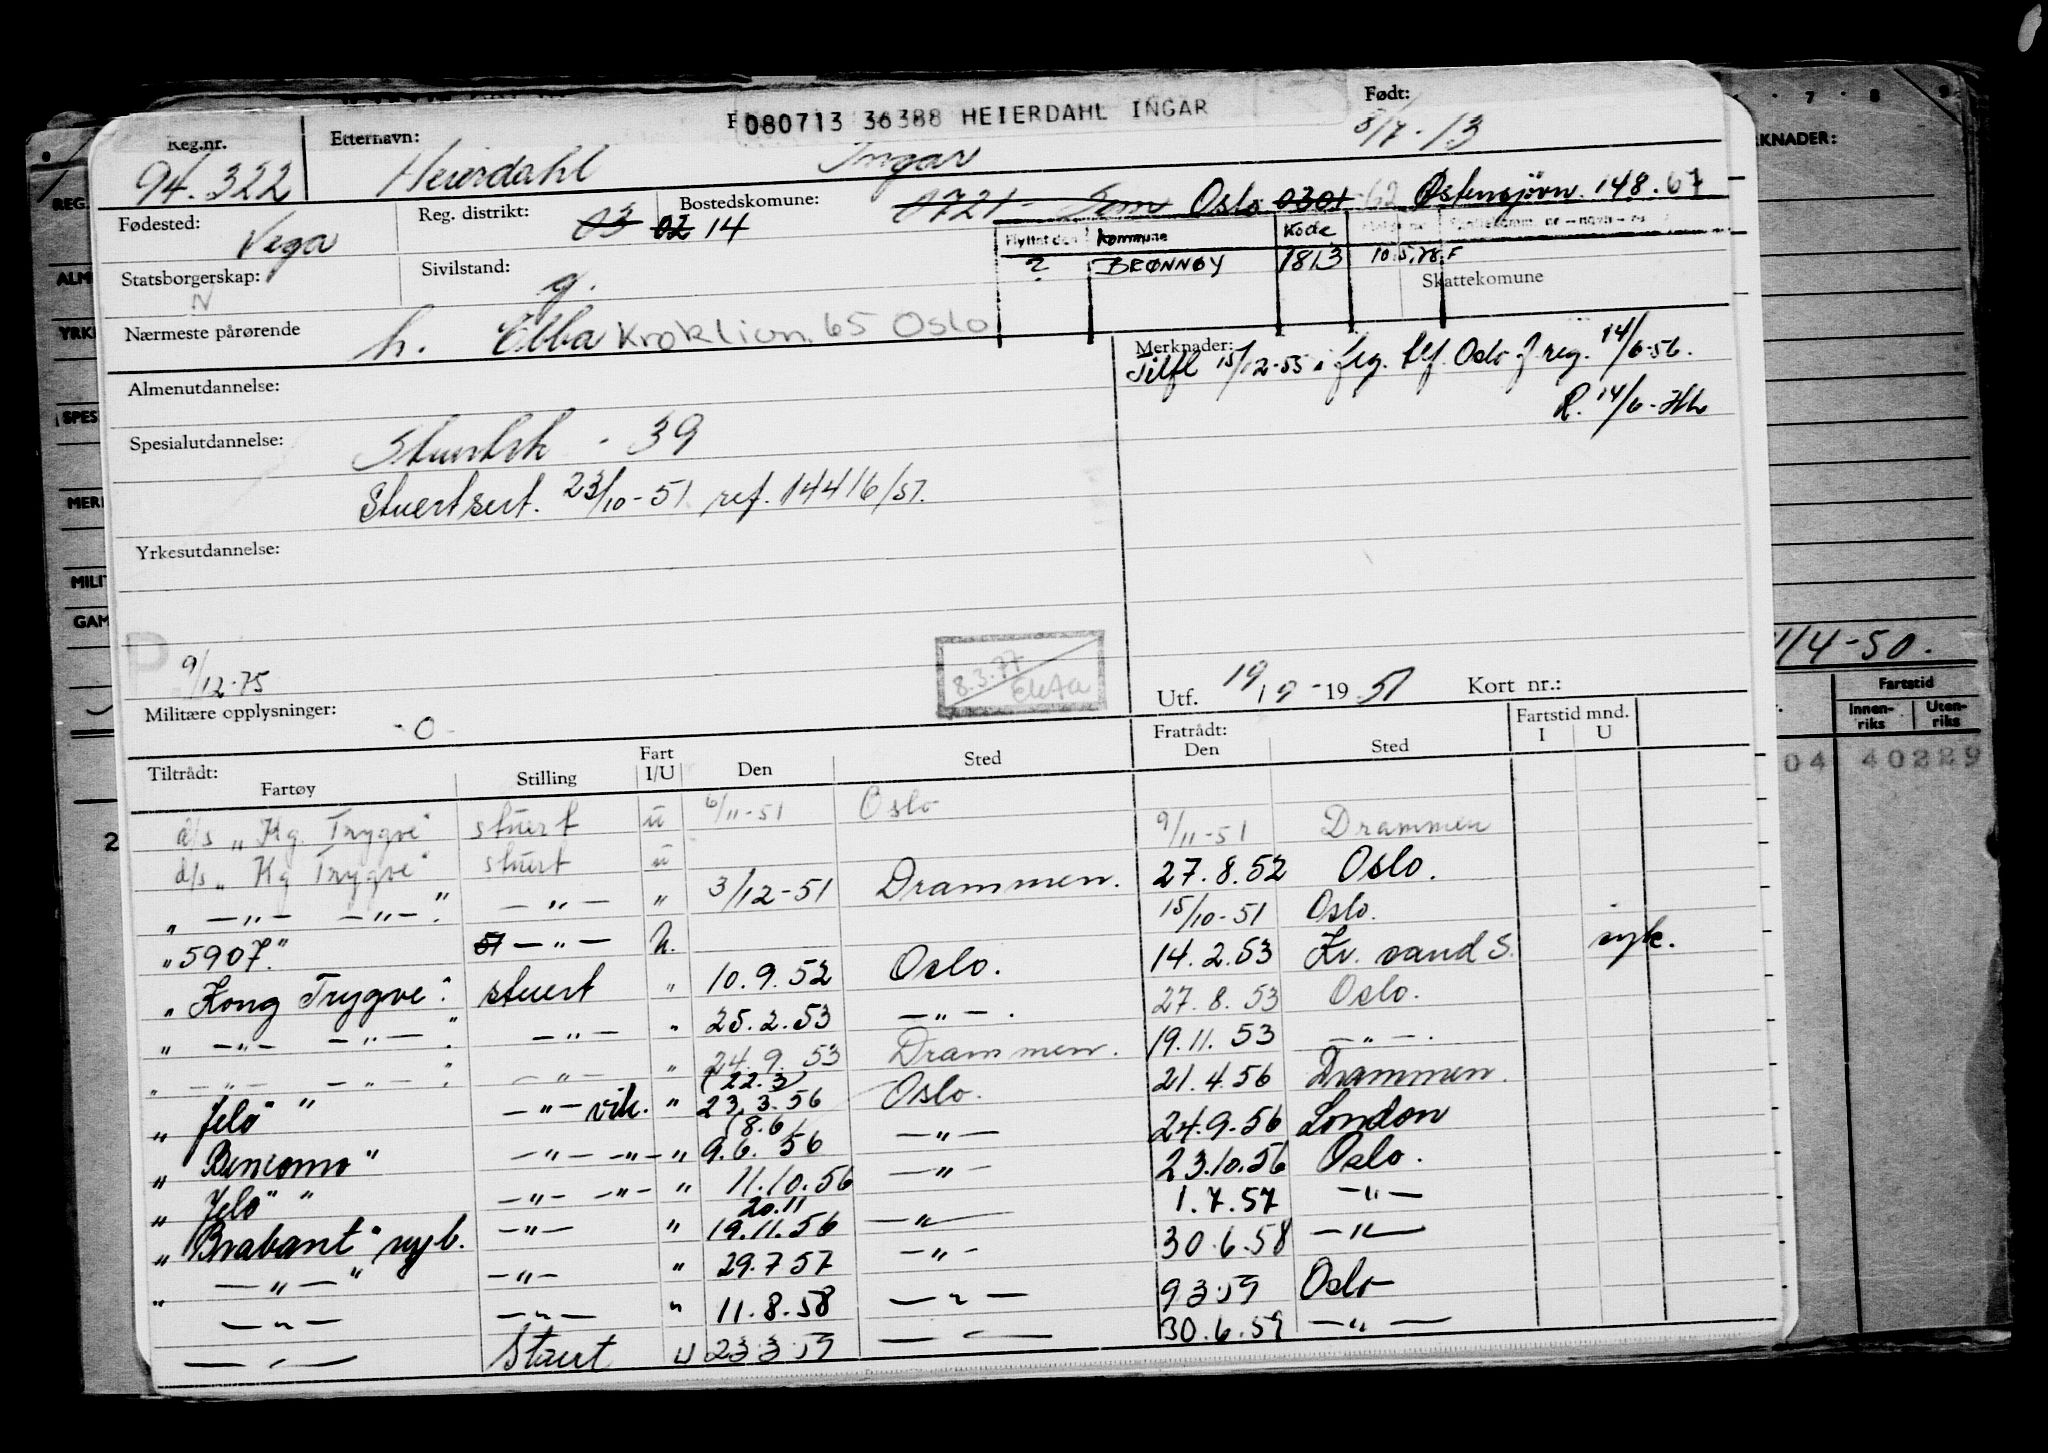 F 080713 36388 HEIERDAHL INGAR Født:
Reg.nr. Etternavn: 8/7-13
94.322 Heierdahl Ingar
Fødested: Reg. distrikt: 03 02 14 Bostedskomune: 0721 - Sem Oslo 0301 Østensjøvn. 148. 67
Vega Flyttet den Kommune Kode
Statsborgerskap: Sivilstand: ? BRØNNØY 1813 10.5.78.F
N g. Skattekomune
Nærmeste pårørende h. Ebba Kroklien 65 Oslo
Merknader:
Tilfl 15/12-55 i flg. tlf. Oslo f. reg. 14/6-56.
R. 14/6-
Almenutdannelse:
Spesialutdannelse: Stuertsk - 39
Stuertsert. 23/10-51 ref. 14416/51.
Yrkesutdannelse:
P.
9/12-75 8.3.77
Utf. 19/9-1951 Kort nr.:
Militære opplysninger: -0-
Tiltrådt: Fratrådt: Fartstid mnd.
Fartøy Stilling Fart I/U Den Sted Den Sted I U
d/s "Kg. Trygve" stuert u 6/11-51 Oslo 9/11-51 Drammen
d/s "Kg Trygve" stuert u 3/12-51 Drammen. 27.8.52 Oslo.
" -"- -"-". -"- " 15/10-51 Oslo.
"5907." 51 -"- u. 14.2.53 Kr. sand S. syk.
" Kong Trygve". stuert " 10.9.52 Oslo. 27.8.53 Oslo.
" -"- -"-". -"- " 25.2.53 -"-. 19.11.53 -"-.
" -"- -"-". -"- " 24.9.53 Drammen. 21.4.56 Drammen.
(22.3)
" Jelö" " -"- vik. " 23.3.56 Oslo. 24.9.56 London
(8.6)
" Bencomo" -"- -"- " 9.6.56 -"- 23.10.56 Oslo.
" Jelö" " -"- -"- " 11.10.56 -"- 1.7.57 -"-
20.11
" Brabant" nyb. -"- " 19.11.56 -"- 30.6.58 -"-
" -"-" -"- " 29.7.57 -"- 9.3.59 Oslo
-"- -"- " 11.8.58 -"- 30.6.59 -"-
-"- Stuert U 23.3.59 -"-
7 8 9
RKNADER:
REG.
ALM
YRK
SPES
MERK
MILIT
GAM
1/4-50.
Fartstid
Innen-riks Uten-riks
04 40229
2